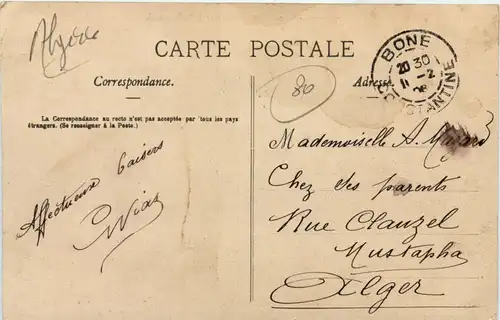 Algérie
CARTE POSTALE
Correspondance.
Adresse
80
BONE
20 30
11 -2
08
CONSTANTINE
La Correspondance au recto n'est pas acceptée par tous les pays
étrangers. (Se renseigner à la Poste.)
Affectueux baisers
Mademoiselle A.
Chez ses parents
Rue Clauzel
Mustapha
Alger